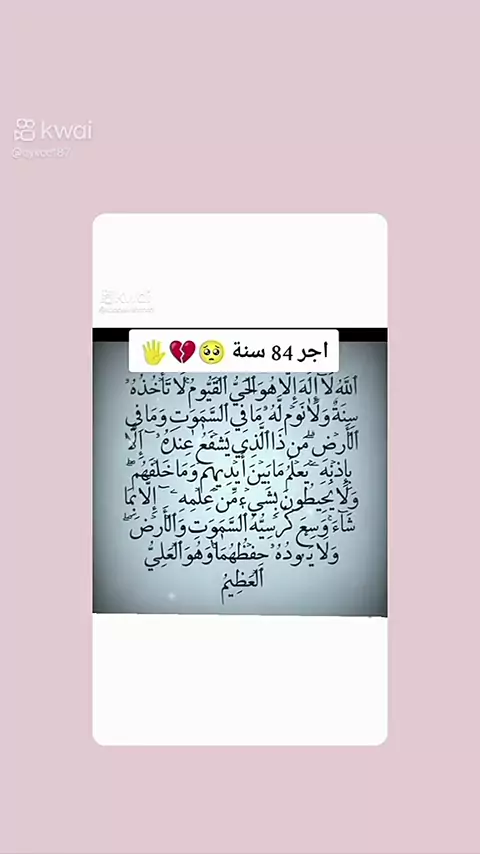 kwai
اجر 84 سنة 🥺💔🖐
ٱللَّهُ لَآ إِلَٰهَ إِلَّا هُوَ ٱلْحَىُّ ٱلْقَيُّومُ ۚ لَا تَأْخُذُهُۥ
سِنَةٌ وَلَا نَوْمٌ ۚ لَّهُۥ مَا فِى ٱلسَّمَٰوَٰتِ وَمَا فِى
ٱلْأَرْضِ ۗ مَن ذَا ٱلَّذِى يَشْفَعُ عِندَهُۥٓ إِلَّا
بِإِذْنِهِۦ ۚ يَعْلَمُ مَا بَيْنَ أَيْدِيهِمْ وَمَا خَلْفَهُمْ ۖ
وَلَا يُحِيطُونَ بِشَىْءٍ مِّنْ عِلْمِهِۦٓ إِلَّا بِمَا
شَآءَ ۚ وَسِعَ كُرْسِيُّهُ ٱلسَّمَٰوَٰتِ وَٱلْأَرْضَ ۖ
وَلَا يَـُٔودُهُۥ حِفْظُهُمَا ۚ وَهُوَ ٱلْعَلِىُّ
ٱلْعَظِيمُ